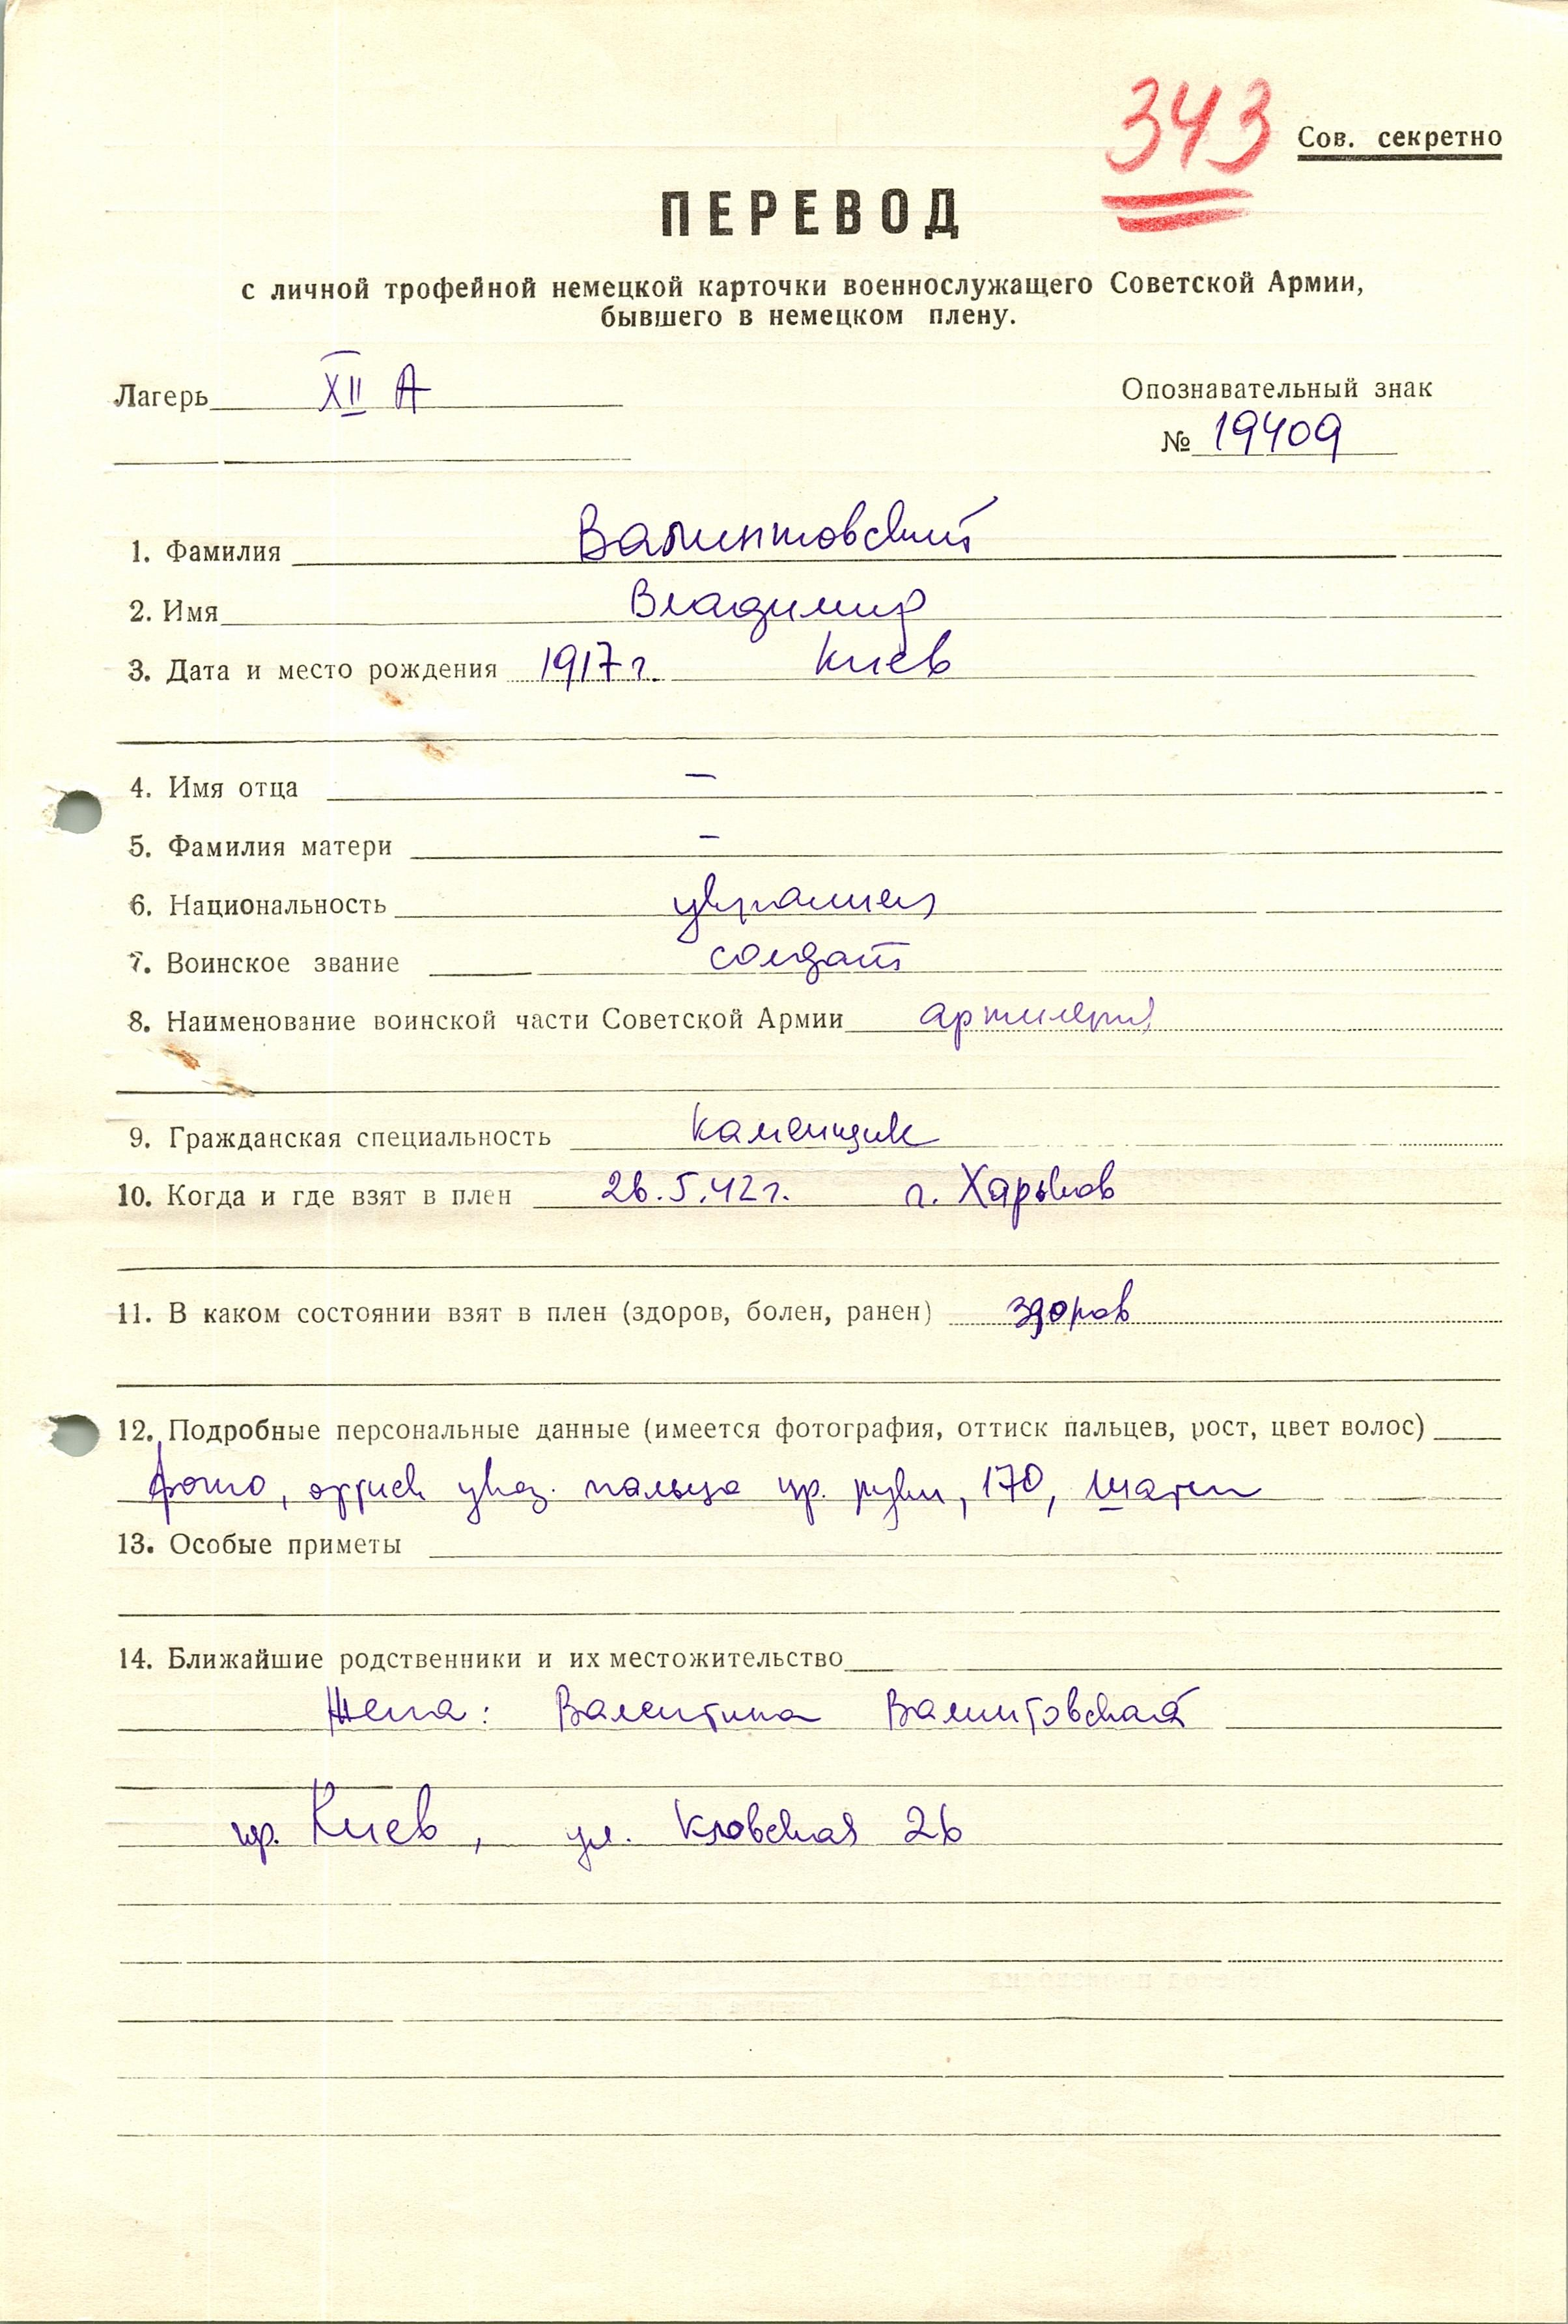 343
Сов. секретно
ПЕРЕВОД
с личной трофейной немецкой карточки военнослужащего Советской Армии,
бывшего в немецком плену.
Лагерь XII А
Опознавательный знак
№ 19409
1. Фамилия Валинтовский
2. Имя Владимир
3. Дата и место рождения 1917 г. Киев
4. Имя отца –
5. Фамилия матери –
6. Национальность украинец
7. Воинское звание солдат
8. Наименование воинской части Советской Армии артилерия
9. Гражданская специальность каменщик
10. Когда и где взят в плен 26.5.42 г. г. Харьков
11. В каком состоянии взят в плен (здоров, болен, ранен) здоров
12. Подробные персональные данные (имеется фотография, оттиск пальцев, рост, цвет волос)
фото, оттиск указ. пальца пр. руки, 170, шатен
13. Особые приметы
14. Ближайшие родственники и их местожительство
Жена: Валентина Валинтовская
пр. Киев, ул. Кловская 26